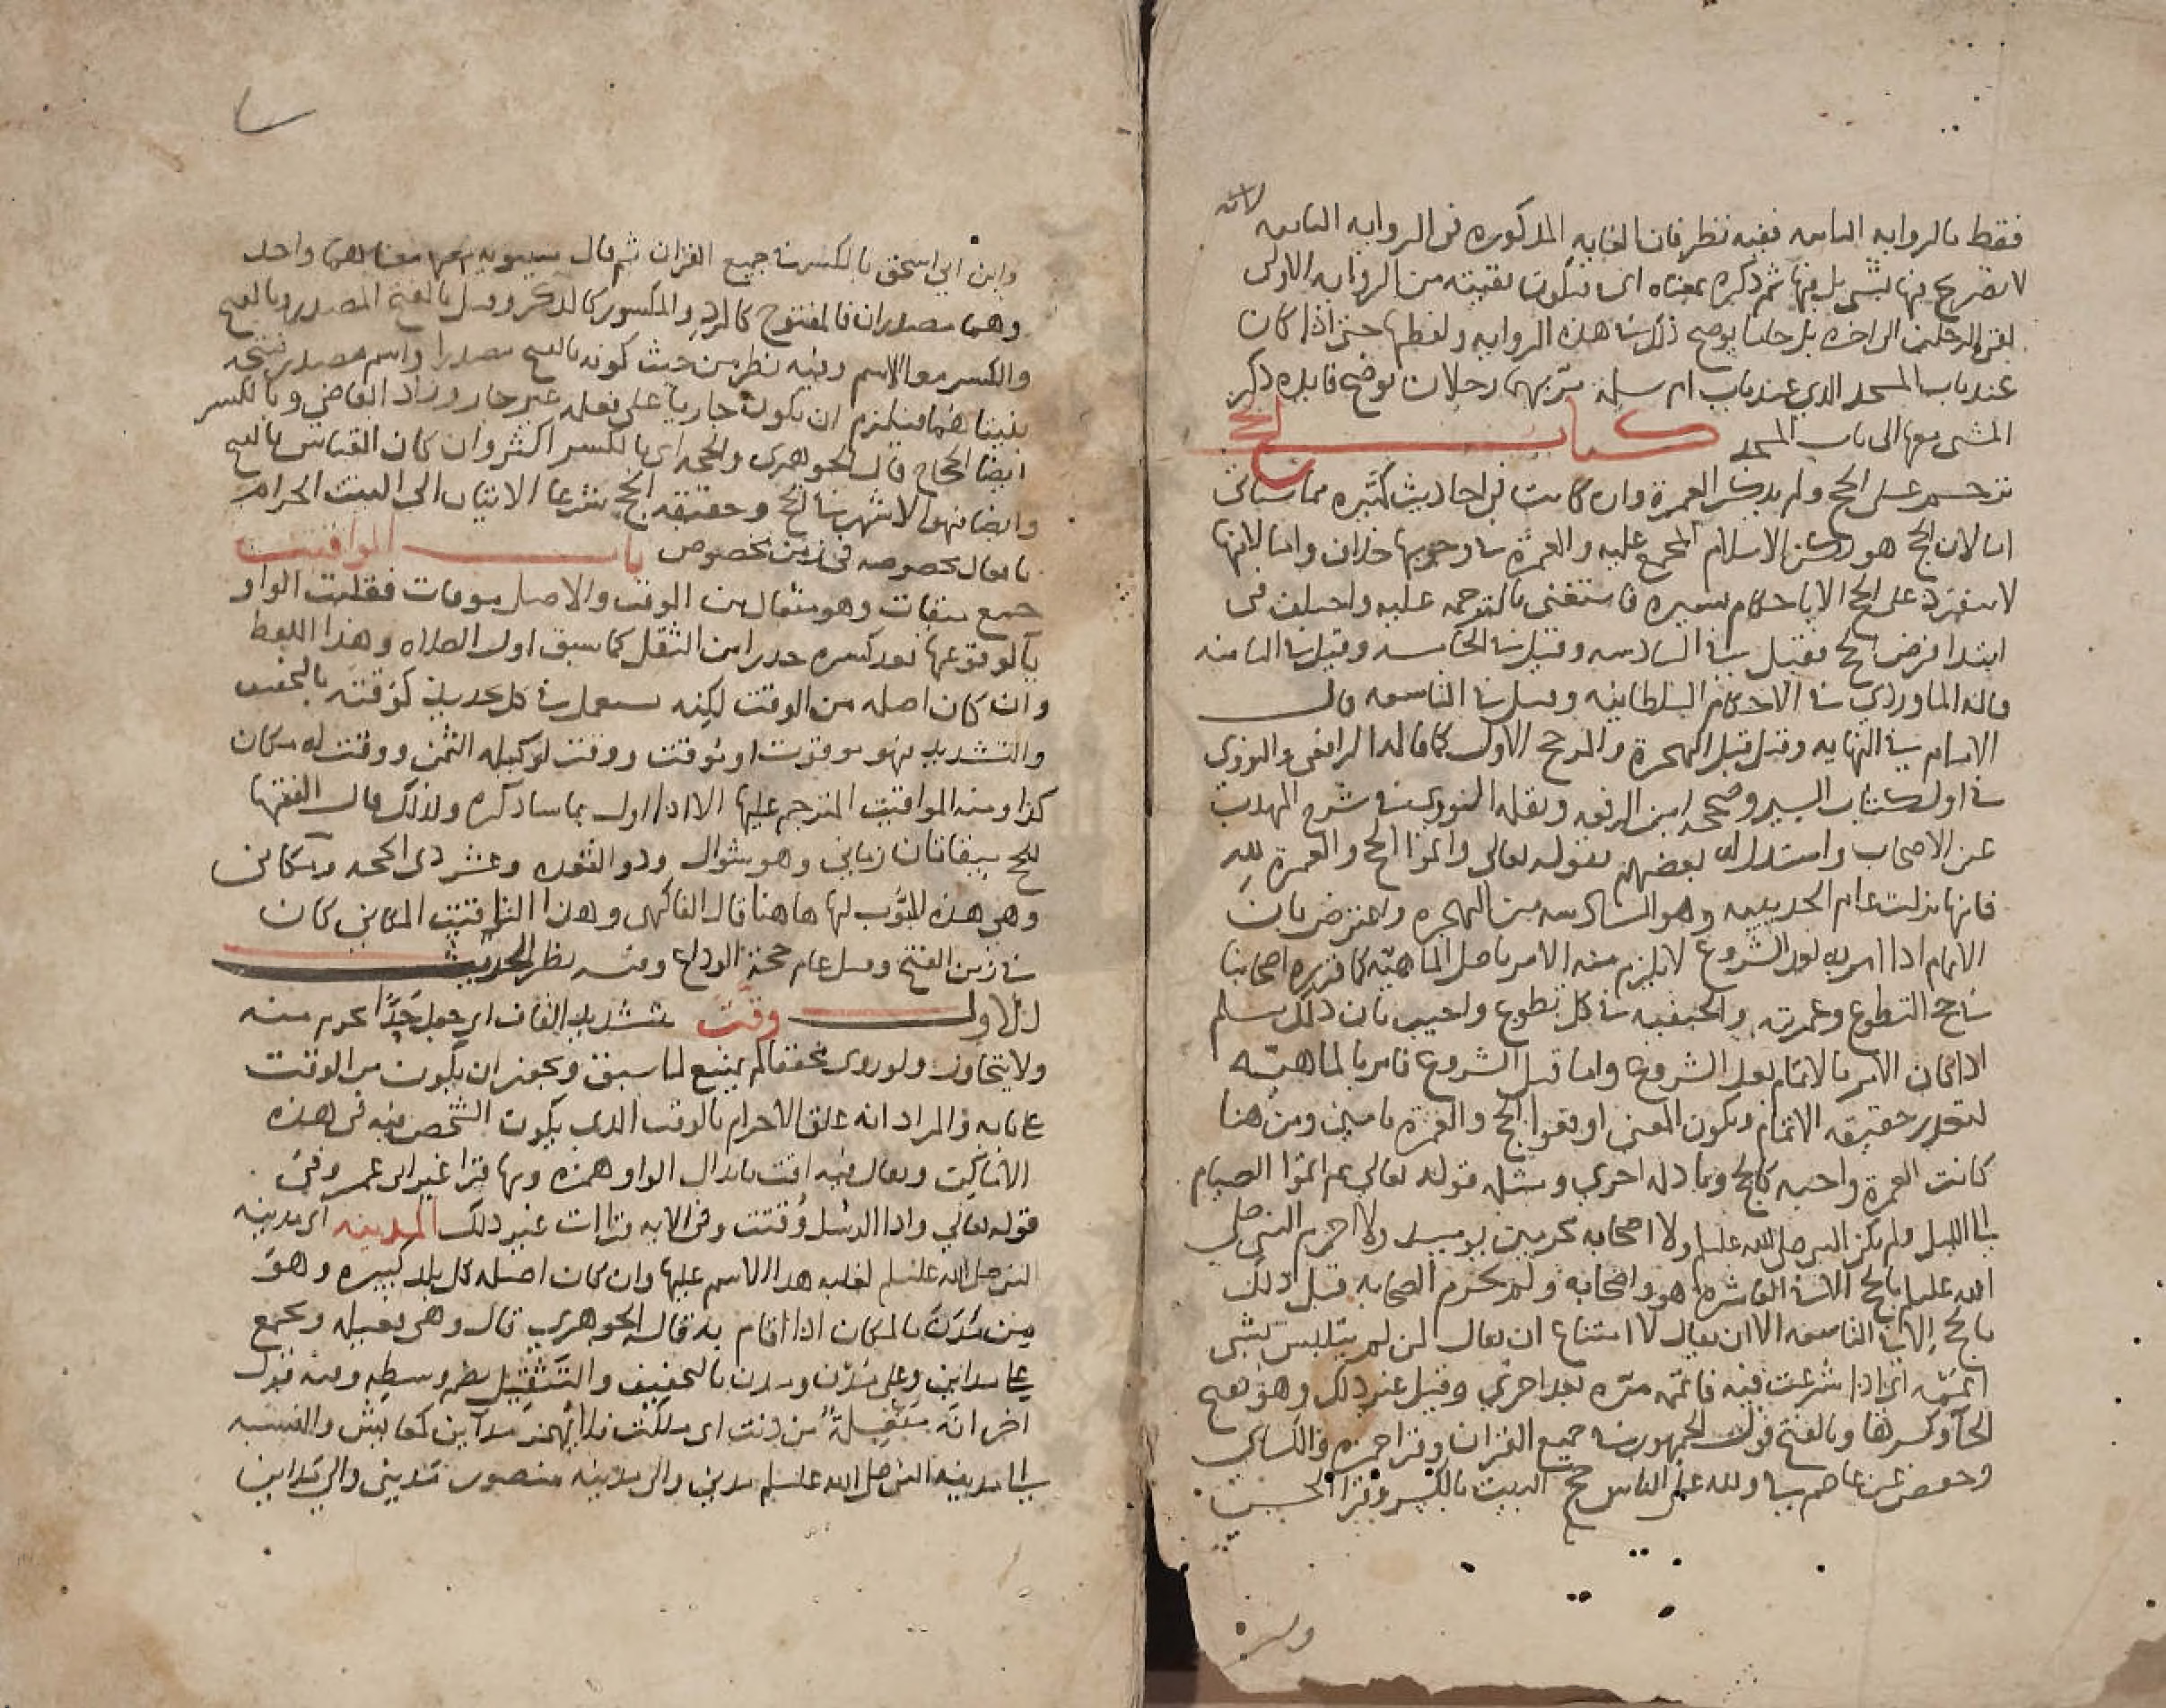 فقط بالروايه الثانيه ففيه نظر فان الغايه المذكوره في الروايه الثانيه لانه
لا تصريح فيها بشي بل فيها ثم ذكره بمعناه اي فتكون بقيته من الروايه الاولى
الرجلين الى اخره بل حلنا يوضح ذلك في هذه الروايه ولفظها حتى اذا كان
عند باب المسجد الذي عند باب ام سلمه مر بهما رجلان توضح فايده ذكر
المشي معها الى باب المسجد كتاب الحج
ترجم على الحج ولم يذكر العمرة وان كانت في احاديث كثيره مما سياتي
اما لان الحج هو ركن الاسلام المجمع عليه والعمرة في وجوبها خلاف واما لانها
لا تنفرد على الحج الا باحكام يسيره فاستغنى بالترجمه عليه واختلف في
ابتدا فرض الحج فقيل في السادسه وقيل في الخامسه وقيل في الثامنه
قاله الماوردي في الاحكام السلطانيه وقيل في التاسعه قال
الامام في النهايه وقيل قبل الهجرة والمرجح الاول كما قاله الرافعي والنووي
في اول كتاب السير وصححه ابن الرفعه ونقله النووي في شرح المهذب
عن الاصحاب واستدل له بعضهم بقوله تعالى واتموا الحج والعمرة لله
فانها نزلت عام الحديبيه وهو السادسه من الهجره واعترض بان
الاتمام اذا امر به بعد الشروع لا يلزم منه الامر باصل الماهيه كما قرره اصحابنا
في حج التطوع وعمرته والحنفيه في كل تطوع واجيب بان ذلك مسلم
اذا كان الامر بالاتمام بعد الشروع واما قبل الشروع فامر بالماهيه
لتعذر حقيقه الاتمام ويكون المعنى اوقعوا الحج والعمرة تامين ومن هنا
كانت العمرة واجبه كالحج وبما دله اخرى ومثله قوله تعالى ثم اتموا الصيام
الى الليل ولم يكن النبي صلى الله عليه وسلم ولا اصحابه محرمين يوميذ ولا احرم النبي صلى
الله عليه وسلم بالحج الا في العاشره هو واصحابه ولم يحرم الصحابه قبل ذلك
بالحج الا في التاسعه الا ان يقال لا امتناع ان يقال لمن لم يتلبس بشي
اتممه اي اذا شرعت فيه فاتمه مره بعد اخرى وقيل غير ذلك وهو بفتح
الحا وكسرها وبالفتح قول الجمهور في جميع القران وقرا حمزه والكساي
وحفص عن عاصم في ولله على الناس حج البيت بالكسر وقرا الحسن
وابن ابي اسحق بالكسر في جميع القران ثم قال سيبويه معناهما واحد
وهما مصدران فالمفتوح كالرد والمكسور كالذكر وقيل بالفتح المصدر وبالفتح
والكسر معا الاسم وفيه نظر من حيث كونه بالفتح مصدرا واسم مصدر
بينهما فيلزم ان يكون جاريا على فعله غير جار وزاد القاضي وبالكسر
ايضا الحجاج قال الجوهري والحجه اي بالكسر اكثر وان كان القياس بالفتح
وايضا فهو الاشهر في الحج وحقيقه الحج شرعا الاتيان الى البيت الحرام
بافعال مخصوصه في زمن مخصوص باب المواقيت
جمع ميقات وهو مفعال من الوقت والاصل موقات فقلبت الواو
يا لوقوعها بعد كسره حذرا من الثقل كما سبق اول الصلاه وهذا اللفظ
وان كان اصله من الوقت لكنه يستعمل في كل تحديد كوقته بالتخفيف
والتشديد فهو موقوت او موقت ووقت لوكيله الثمن ووقت له مكان
كذا ومنه المواقيت المترجم عليها الا اذا اول بما ساذكره ولذلك قال الفقها
للحج ميقاتان زماني وهو شوال وذو القعده وعشر ذي الحجه ومكاني
وهي هذه المبوب لها هاهنا قال الفاكهي وهذا التاقيت المكاني كان
في زمن الفتح وقيل عام حجة الوداع وفيه نظر الحديث
الاول وقت بتشديد القاف اي جعل حدا يحرم منه
ولا يتجاوز ولو روى مخففا لم يمتنع لما سبق ويجوز ان يكون من الوقت
على بابه والمراد انه علق الاحرام بالوقت الذي يكون الشخص فيه في هذه
الاماكن ويقال فيه اقت بابدال الواو همزه وبها قرا غير ابي عمرو في
قوله تعالى واذا الرسل وقتت وفي الايه قراات غير ذلك المدينه اي مدينه
النبي صلى الله عليه وسلم لغلبه هذا الاسم عليها وان كان اصله كل بلد كبيره وهو
من مدن بالمكان اذا اقام به قاله الجوهري قال وهي فعيله وتجمع
على مداين وعلى مدن ومدن بالتخفيف والتثقيل بضم وسطه وفيه قول
اخر انه مفعلة من دنت اي ملكت فلا يهمز مداين كمعايش والنسبه
الى مدينه النبي صلى الله عليه وسلم مدني والى مدينه منصور مديني والى مداين